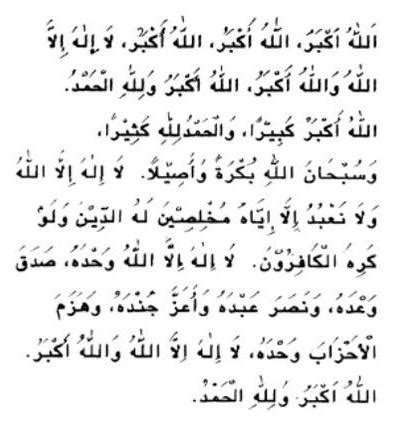 اَللّٰهُ اَكْبَرُ، اَللّٰهُ أَكْبَرُ، اَللّٰهُ أَكْبَرُ، لَا إِلٰهَ إِلَّا
اللّٰهُ وَاللّٰهُ أَكْبَرُ، اَللّٰهُ أَكْبَرُ وَلِلّٰهِ الْحَمْدُ.
اللّٰهُ أَكْبَرُ كَبِيْرًا، وَالْحَمْدُلِلّٰهِ كَثِيْرًا،
وَسُبْحَانَ اللّٰهِ بُكْرَةً وَأَصِيْلًا. لَا إِلٰهَ إِلَّا اللّٰهُ
وَلَا نَعْبُدُ إِلَّا إِيَّاهُ مُخْلِصِيْنَ لَهُ الدِّيْنَ وَلَوْ
كَرِهَ الْكَافِرُوْنَ. لَا إِلٰهَ إِلَّا اللّٰهُ وَحْدَهُ، صَدَقَ
وَعْدَهُ، وَنَصَرَ عَبْدَهُ وَأَعَزَّ جُنْدَهُ، وَهَزَمَ
الْأَحْزَابَ وَحْدَهُ، لَا إِلٰهَ اِلَّا اللّٰهُ وَاللّٰهُ أَكْبَرُ.
اَللّٰهُ اَكْبَرُ وَلِلّٰهِ الْحَمْدُ.